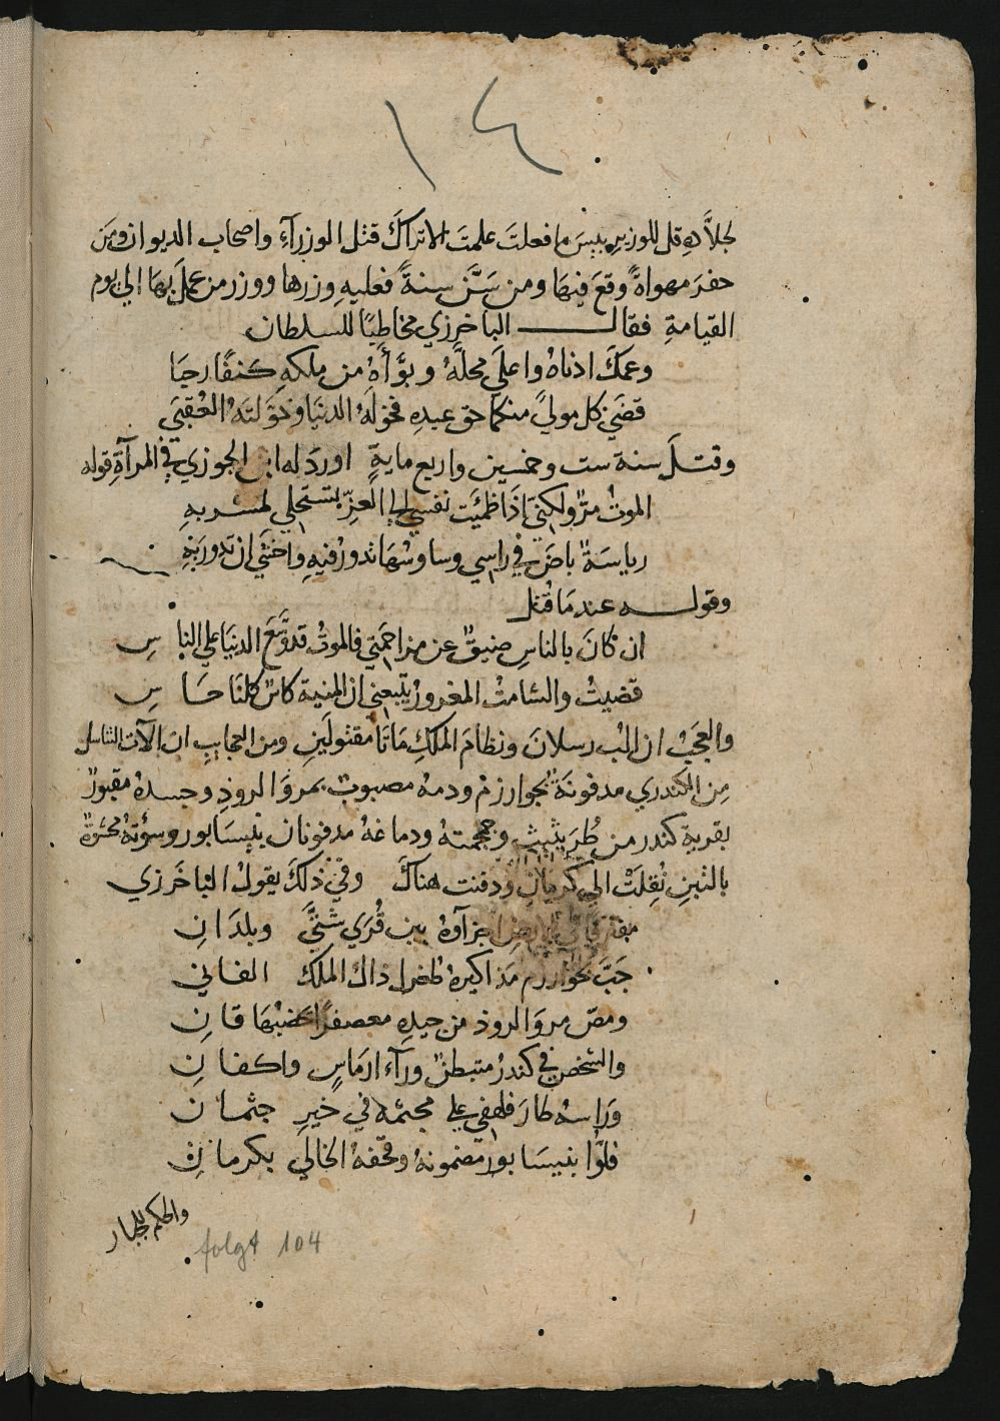 ١٤
لجلاَّدهِ قل للوزيرِ بيسَ ما فعلتَ علمتَ الاتراكَ قتل الوزرآءِ واصحاب الديوان ومَن
حفرَ مهواةً وقعَ فيهَا ومن سَنَّ سنةً فعليهِ وزرها ووزر من عملَ بهَا الي يوم
القيامةِ فقال الباخرزي مخاطبًا للسلطان
وعمكَ ادناهُ واعلَي محلَّهُ وبوَّأهُ من ملكهِ كنفًا رحبَا
قضَي كل موليً منكما حق عبدهِ فخولهُ الدنيَا وخوَّلتَهُ العُقبَي
وقتلَ سنة ست وخمسين واربع مايةٍ اوردَ له ابن الجوزي في المرآةِ قوله
الموتُ مرٌّ ولكنّي اذَا ظمئَت نفسي الي العزِّ يستحلي لمشربهِ
رياسَةٌ باضَ في راسي وساوسُهَا تدورُ فيهِ واخشَي ان تدورَ بهِ
وقوله عندمَا قُتل
ان كانَ بالناسِ ضيقٌ عن مزاحمتي فالموتُ قد وسَّعَ الدنيَا علي الناسِ
قضيتُ والشامتُ المغرورُ يتبعني ان المنية كاسٌ كلنَا حَاسِ
والعجَبُ ان الب رسلانَ ونظامَ الملكِ مَاتَا مقتولَينِ ومن العجايبِ ان الآت التناسل
مِن الكندري مدفونَةٌ بخوارزم ودمهُ مصبوبٌ بمروَ الروذِ وجسدهُ مقبورٌ
بقريةِ كندر من طُرَيثيث وجمجمتهُ ودماغهُ مدفونان بنيسَابور وسؤتهُ محشوَّةٌ
بالتبنِ نُقِلتْ الي كرمان ودفنت هناكَ وفي ذلكَ يقولُ الباخَرزي
مفترقًا في الارضِ اجزآوهُ بين قُرَي شتَّي وبلدَانِ
جَبَّ بخوارزم مَذاكيرهُ طغرل ذاك الملك الفاني
ومصّ مروَ الروذ من جيدهِ معصفرًا تخضبُهَا قانِ
والشخص في كندرُ متبطنٌ ورآء ارمَاسٍ واكفانِ
ورَاسهُ طارَ فلهفي علي مجثمهِ في خيرِ جثمانِ
فلوَّا بنيسَابور مضمونهُ وقحفهُ الخالي بكرمانِ
والحكم للجبار
folgt 104